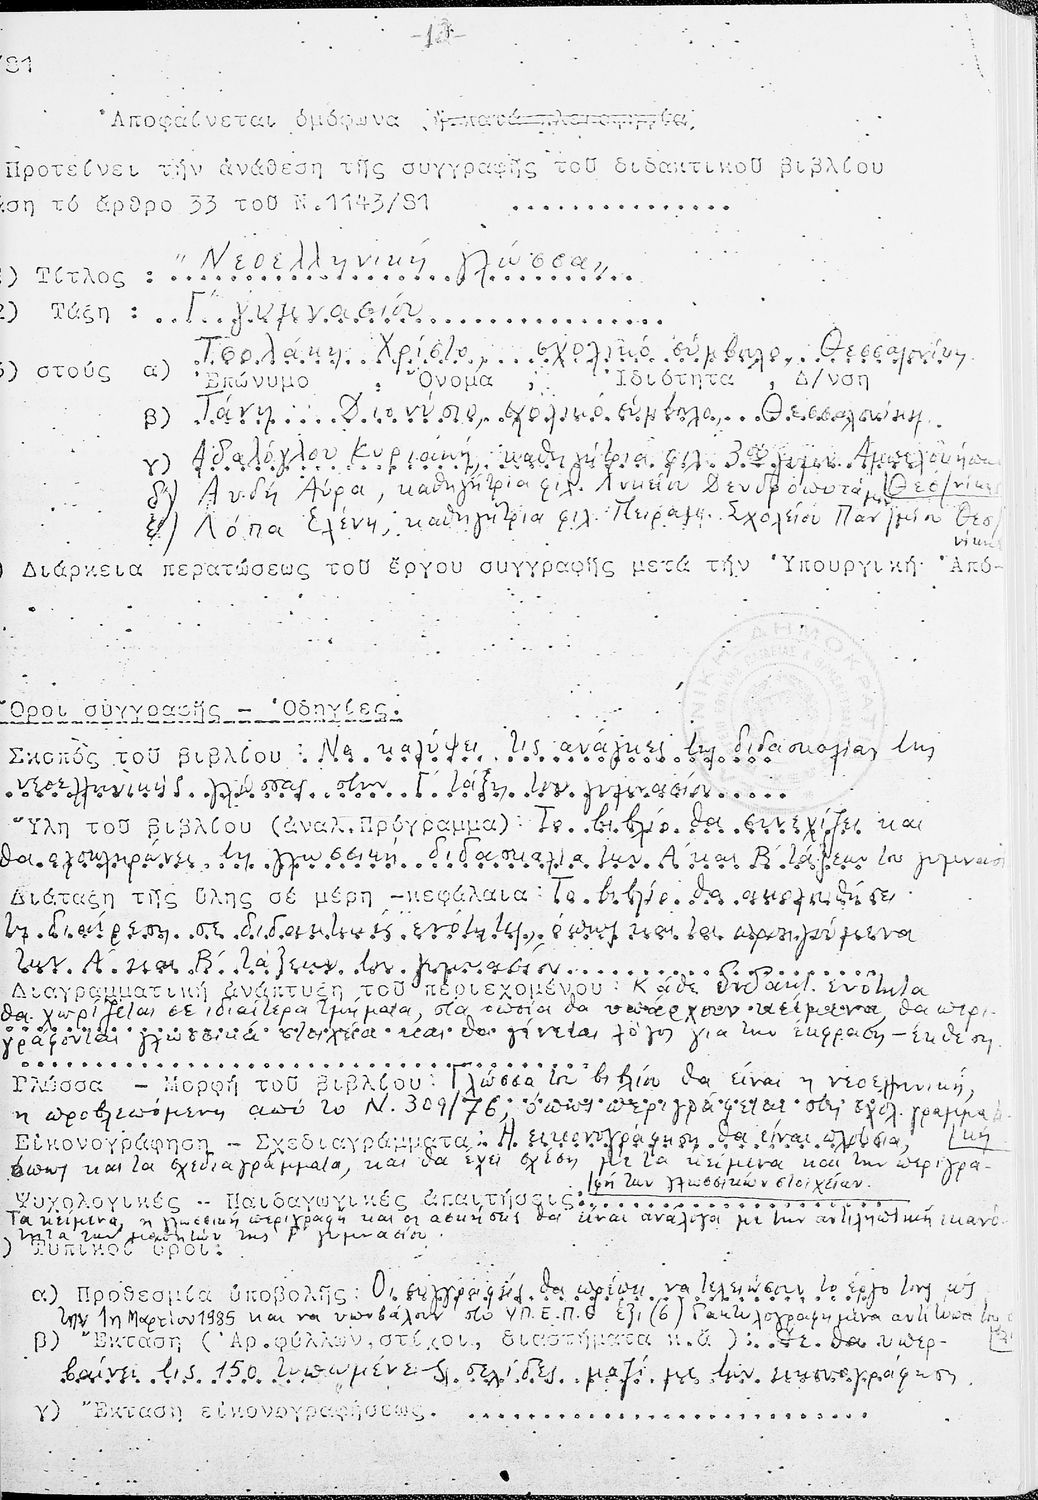 -12-
/81
Ἀποφαίνεται ὁμόφωνα (ἤ κατά πλειοψηφία)
Προτείνει τήν ἀνάθεση τῆς συγγραφῆς τοῦ διδακτικοῦ βιβλίου
άση τό ἄρθρο 33 τοῦ Ν.1143/81 ...............
) Τίτλος : "Νεοελληνική γλώσσα"
2) Τάξη : Γ΄ γυμνασίου
) στούς α) Τσολάκη Χρίστο, σχολικό σύμβουλο, Θεσσαλονίκης
Ἐπώνυμο , Ὄνομα , Ἰδιότητα , Δ/νση
β) Τάνη Διονύσιο, σχολικό σύμβουλο, Θεσσαλονίκη
γ) Αδαλόγλου Κυριακή, καθηγήτρια φιλ. 3ου
δ) Αυδή Αύρα, καθηγήτρια φιλ. Λυκείου Δενδροποτάμου Θεσ/νίκης
ε) Λόπα Ελένη, καθηγήτρια φιλ. Πειραμ. Σχολείου Παν/μίου Θεσ/
νίκης
) Διάρκεια περατώσεως τοῦ ἔργου συγγραφῆς μετά τήν Ὑπουργική Ἀπό-
Ὅροι συγγραφῆς - Ὁδηγίες.
Σκοπός τοῦ βιβλίου : Να καλύψει τις ανάγκες της διδασκαλίας της
νεοελληνικής γλώσσας στην Γ΄ τάξη του γυμνασίου
Ὕλη τοῦ βιβλίου (ἀναλ.Πρόγραμμα): Το βιβλίο θα συνεχίζει και
θα ολοκληρώνει τη γλωσσική διδασκαλία των Α΄ και Β΄ τάξεων του γυμνασί
Διάταξη τῆς ὕλης σέ μέρη -κεφάλαια: Το βιβλίο θα ακολουθήσει
τη διαίρεση σε διδακτικές ενότητες, όπως και τα προηγούμενα
των Α΄ και Β΄ τάξεων του γυμνασίου
Διαγραμματική ἀνάπτυξη τοῦ περιεχομένου: Κάθε διδακτ. ενότητα
θα χωρίζεται σε ιδιαίτερα τμήματα, στα οποία θα υπάρχουν κείμενα, θα περι-
γράφονται γλωσσικά στοιχεία και θα γίνεται λόγος για την έκφραση - έκθεση.
Γλώσσα - Μορφή τοῦ βιβλίου: Γλώσσα του βιβλίου θα είναι η νεοελληνική,
η προβλεπόμενη από το Ν. 309/76, όπως περιγράφεται στη σχολ. γραμματι-
κή
Εἰκονογράφηση - Σχεδιαγράμματα: Η εικονογράφηση θα είναι πλούσια,
όπως και τα σχεδιαγράμματα, και θα έχει σχέση με τα κείμενα και την περιγρα-
φή των γλωσσικών στοιχείων.
Ψυχολογικές - Παιδαγωγικές ἀπαιτήσεις:
Τα κείμενα, η γλωσσική περιγραφή και οι ασκήσεις θα είναι ανάλογα με την αντιληπτική ικανό-
τητα των μαθητών της Γ΄ γυμνασίου.
) Τυπικοί ὅροι:
α) Προθεσμία ὑποβολῆς: Οι συγγραφείς θα πρέπει να τελειώσουν το έργο τους ως
την 1η Μαρτίου 1985 και να υποβάλουν στο ΥΠ.Ε.Π.Θ έξι (6) δακτυλογραφημένα αντίτυπα
β) Ἔκταση (Ἀρ.φύλλων,στίχοι, διαστήματα κ.ἄ ): Δε θα υπερ-
βαίνει τις 150 τυπωμένες σελίδες μαζί με την εικονογράφηση.
γ) Ἔκταση εἰκονογραφήσεως. ...........................